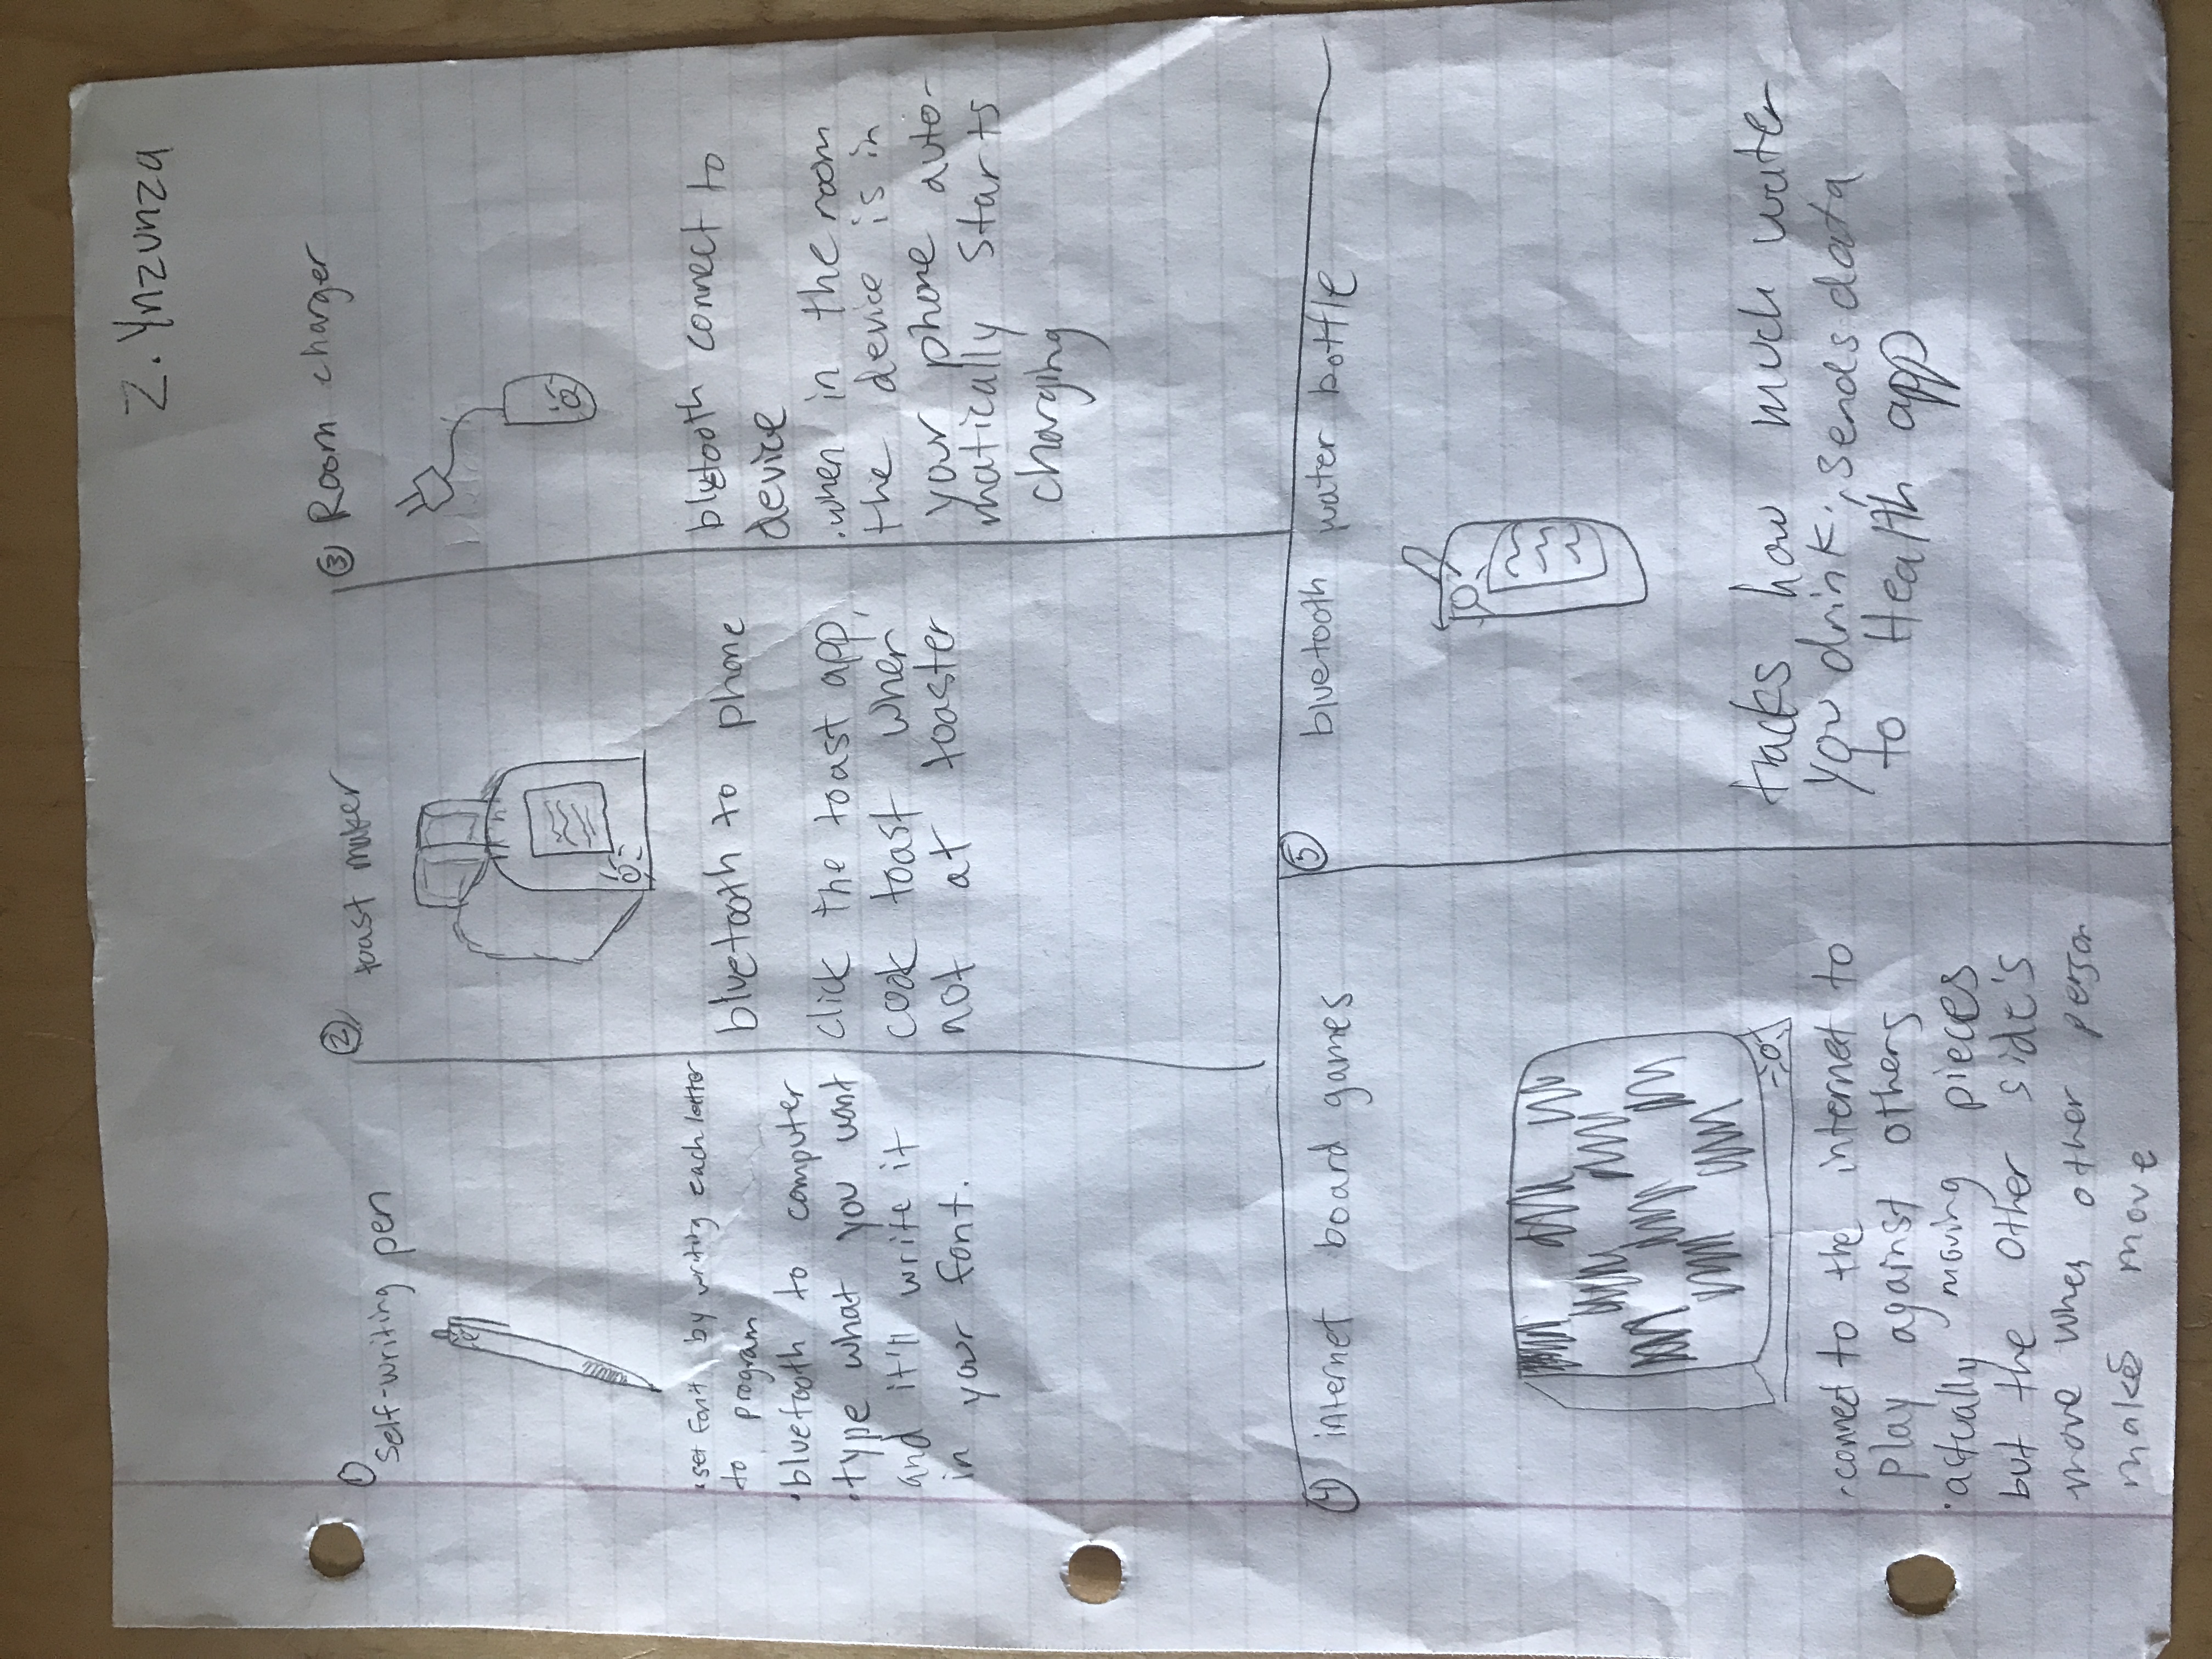 Z. Ynzunza
① Self-writing pen
• set font by writing each letter
to program
• bluetooth to computer
• type what you want
and it'll write it
in your font.
② toast maker
bluetooth to phone
click the toast app,
cook toast when
not at toaster
③ Room charger
bluetooth connect to
device
• when in the room
the device is in
your phone auto-
matically starts
charging
④ internet board games
• connect to the internet to
play against others
• actually moving pieces
but the other side's
move when other person
makes move
⑤ bluetooth water bottle
tracks how much water
you drink, sends data
to Health app